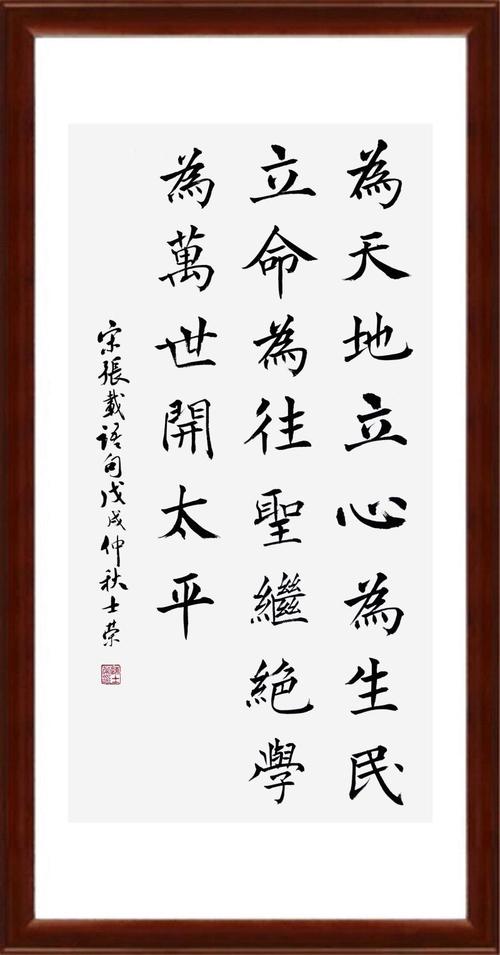 為天地立心為生民
立命為往聖繼絶學
為萬世開太平
宋張載語句戊戌仲秋士荣